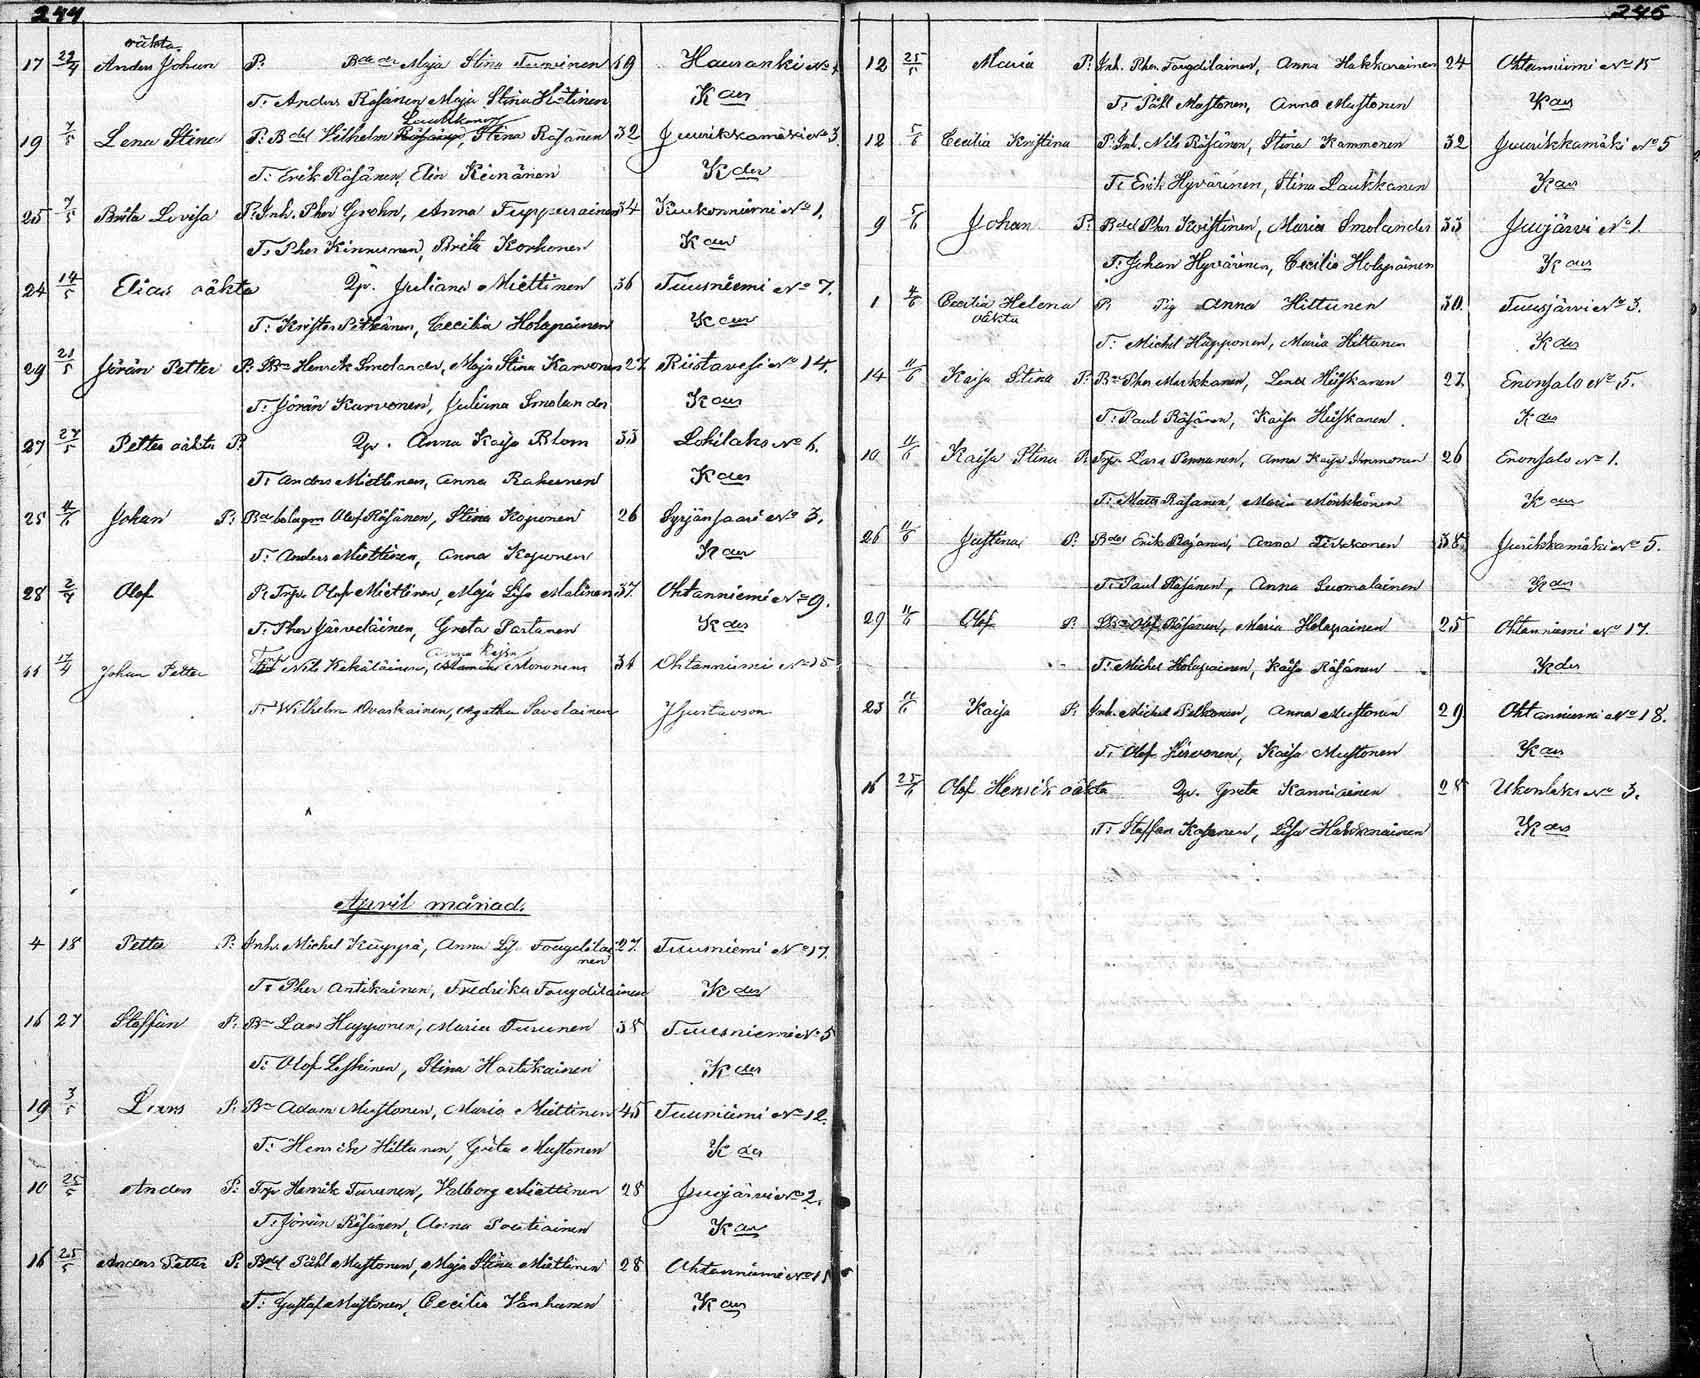 244
oäkta
17 29/4 Anders Johan P: Bde dr Maja Stina Tuminen 19 Hausanki No
T: Anders Räsänen Maja Stina Hötinen K der
Laukkanen
19 7/5 Lena Stina P: Bdel Vilhelm Stina Räsänen 32 Juurikkamäki No 3
T: Erik Räsänen, Elin Keinänen K der
25 7/5 Brita Lovisa P: Inh. Pher Grohn, Anna Tuppurainen 34 Kukonniemi No 1.
T: Pher Kinnunen, Brita Korhonen K der
24 14/5 Elias oäkta Qp. Juliana Miettinen 36 Tuusniemi No 7.
T: Krister Pitkänen, Cecilia Holopainen K der
29 21/5 Jöran Petter P: Bn Henrik Smolander, Maja Stina Karvonen 27 Riistavesi No 14.
T: Jöran Karvonen, Juliana Smolander K der
27 27/5 Petter oäkta P: Qp. Anna Kaisa Blom 33 Lohilaks No 6.
T: Anders Miettinen, Anna Rahunen K der
25 11/6 Johan P: Bde bolagm Olof Räsänen, Stina Koponen 26 Syrjänsaari No 3.
T: Anders Miettinen, Anna Koponen K der
28 2/4 Olof P: Trp. Olof Miettinen, Maja Lisa Malinen 37 Ohtanniemi No 9.
T: Pher Järveläinen, Greta Partanen K der
Anna Kajsa
11 17/4 Johan Petter Nils Kekäläinen, Mononen 34 Ohtanniemi No 15
T: Wilhelm Ovaskainen, Agatha Savolainen JGustavson
April månad.
4 18 Petter P: Inh. Michel Kuppa, Anna Lis. Fougdilai 27 Tuusniemi No 17.
nen
T: Pher Antikainen, Fredrika Fougdilainen K der
16 27 Staffan P: Bn Lars Happonen, Maria Turunen 38 Tuusniemi No 5
T: Olof Leskinen, Stina Hartikainen K der
19 3/5 Lars P: Bn Adam Mustonen, Maria Miettinen 45 Tuusniemi No 12.
T: Henrik Hiltunen, Greta Mustonen K der
10 25/5 Anders P: Trp Henrik Turunen, Valborg Miettinen 28 Juojärvi No 2.
T: Jöran Räsänen, Anna Poutiainen K der
16 25/5 Anders Petter P: Bdel Påhl Mustonen, Maja Stina Miettinen 28 Ohtanniemi No 15
T: Gustaf Mustonen, Cecilia Vanhanen K der
245
12 25/5 Maria P: Inh. Pher Fougdilainen, Anna Hakkarainen 24 Ohtanniemi No 15
T: Påhl Mustonen, Anna Mustonen K der
12 5/6 Cecilia Kristina P: Inh. Nils Räsänen, Stina Kammonen 32 Juurikkamäki No 5
T: Erik Hyvärinen, Stina Laukkanen K der
9 5/6 Johan P: Bdel Pher Kristinen, Maria Smolander 33 Juojärvi No 1.
T: Johan Hyvärinen, Cecilia Holopainen K der
1 4/6 Cecilia Helena P: Pig Anna Hiltunen 30. Tuusjärvi No 3.
oäkta
T: Michel Happonen, Maria Hiltunen K der
14 11/6 Kaisa Stina P: Bn Pher Markkanen, Lena Hiiskanen 27. Enonsalo No 5.
T: Paul Räsänen, Kaisa Hiiskanen. K der
10 11/6 Kaisa Stina P: Trp. Lars Pennanen, Anna Kajsa Immonen 26 Enonsalo No 1.
T: Matts Räsänen, Maria Mönkkönen K der
26 11/6 Justina P: Bdel Erik Pajanen, Anna Tirkkonen 38. Juurikkamäki No 5.
T: Paul Räsänen, Anna Suomalainen K der
29 11/6 Olof P: Bn Olof Räsänen, Maria Holopainen 25 Ohtanniemi No 17.
T: Michel Holopainen, Kaisa Räsänen K der
23 11/6 Kaisa P: Inh. Michel Pelkonen, Anna Mustonen 29 Ohtanniemi No 18.
T: Olof Hirvonen, Kaisa Mustonen K der
16 25/6 Olof Henrik oäkta Qp. Greta Kanniainen 28 Ukonlaks No 3.
T: Staffan Kosonen, Lisa Hakkarainen K der